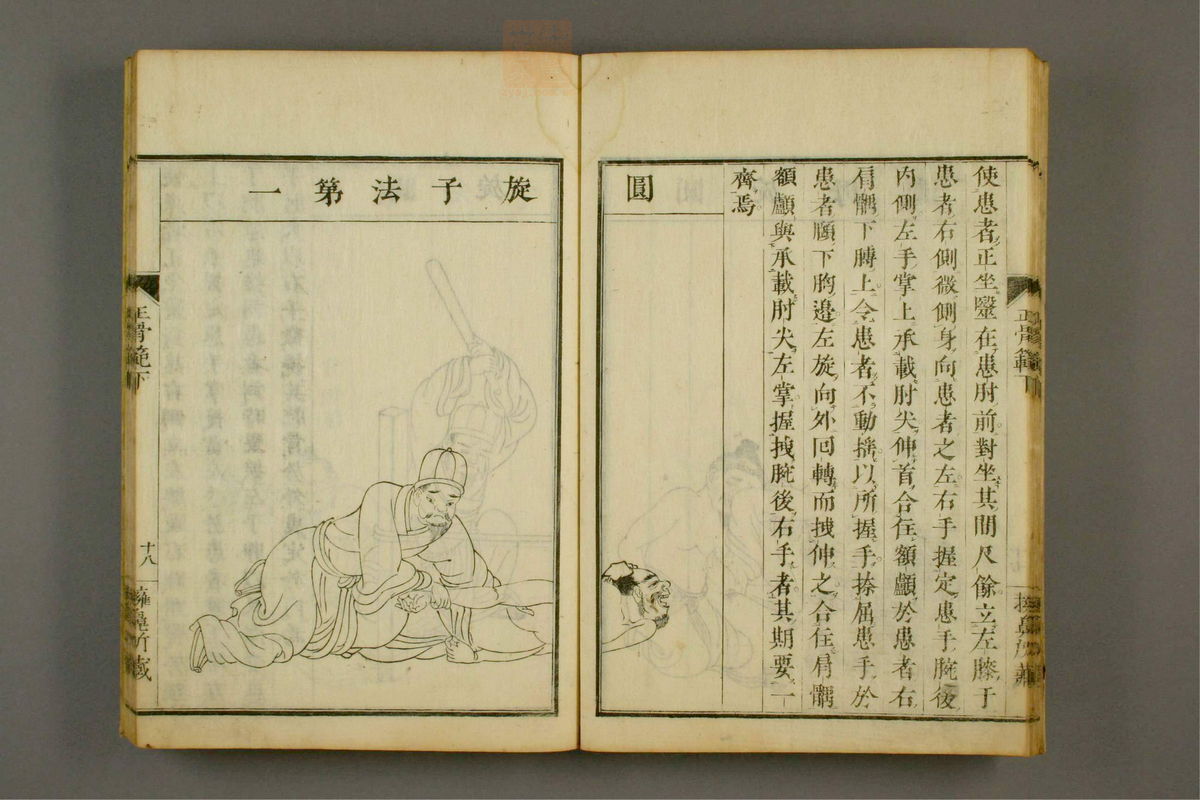 使患者正坐醫在患肘前對坐其間尺餘立左膝于
患者右側微側身向患者之左右手握定患手腕後
內側左手掌上承載肘尖伸首合在額顱於患者右
肩髃下膊上令患者不動搖以所握手捺屈患手於
患者願下胸邊左旋向外回轉而拽伸之合在肩髃
額顱與承載肘尖左掌握拽腕後右手者其期要一
齊焉
旋子法第一
圓
正骨範下
正骨範下
十八